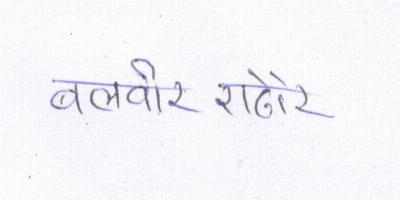 बलवीर राठौर